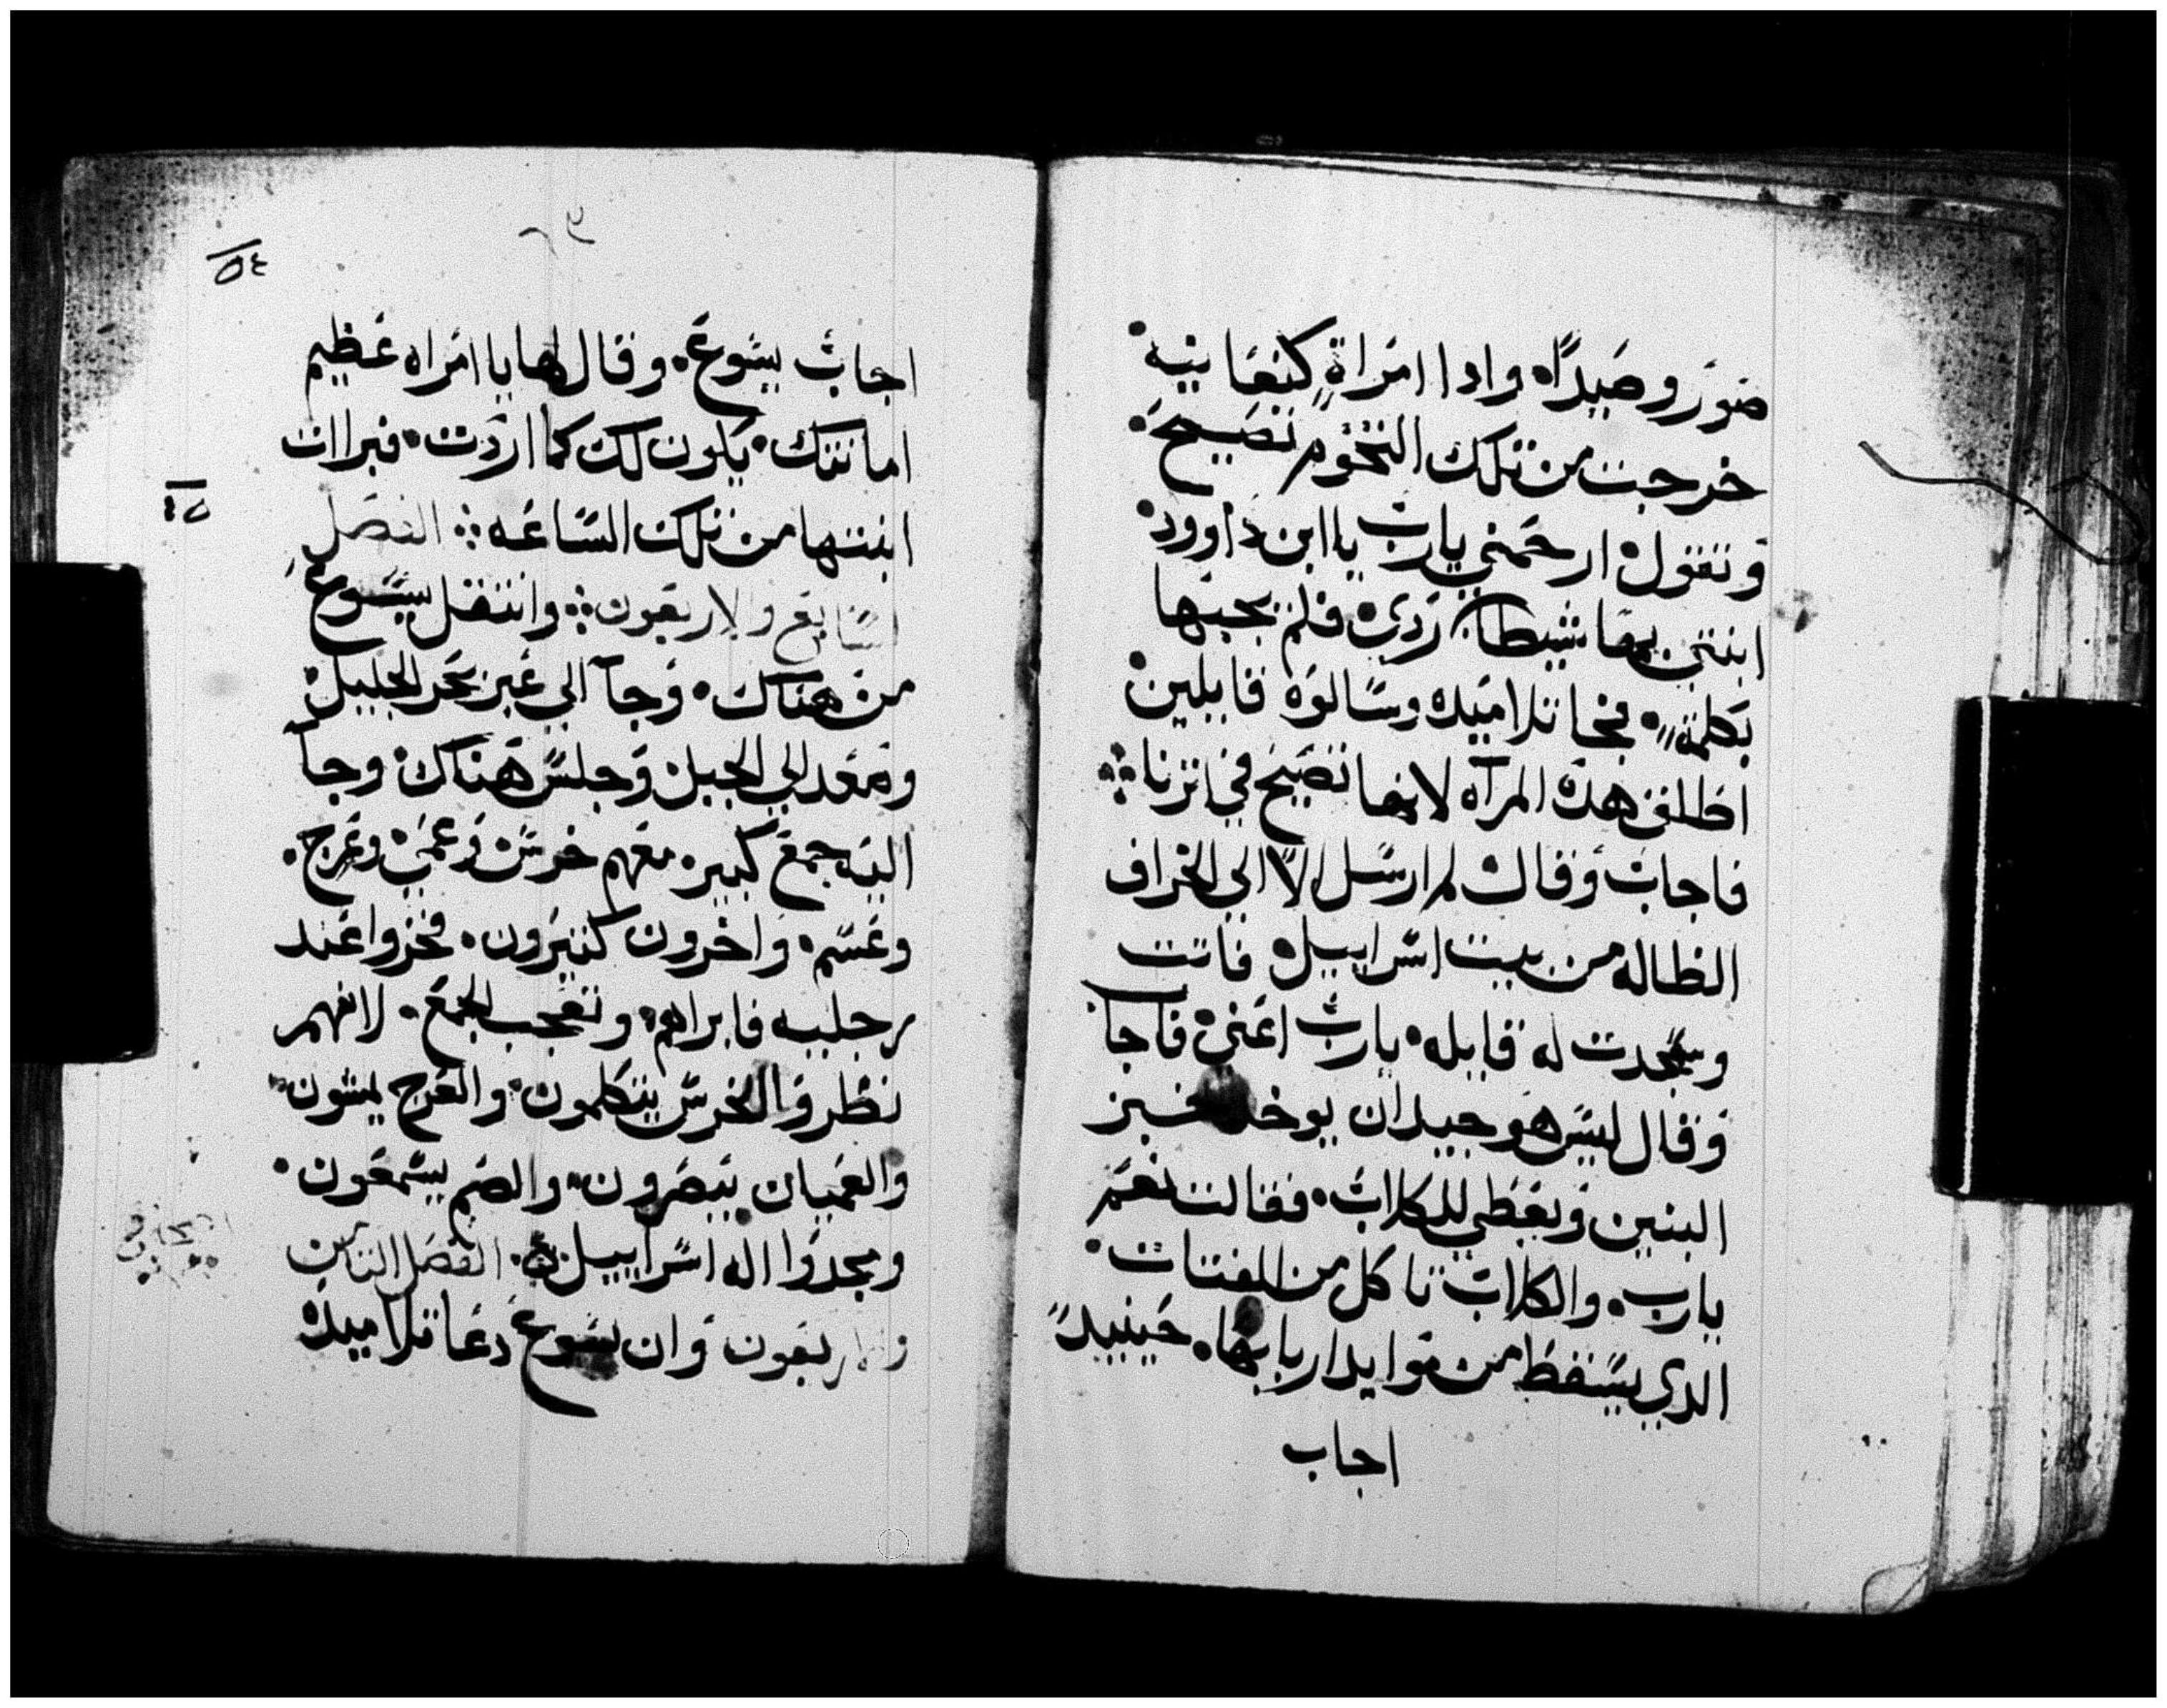 صور وصيدا واذا امراة كنعانيه
خرجت من تلك التخوم تصيح
وتقول ارحمني يارب ياابن داوود
ابنتي بها شيطان ردي فلم يجبها
بكلمة فجا تلاميده وسالوه قايلين
اطلق هده المرآه لانها تصيح في اثرنا
فاجاب وقال لم ارسل الا الي الخراف
الظاله من بيت اسراييل فاتت
وسجدت له قايله يارب اعني فاجا
وقال ليس هو جيدان يوخد خبز
البنين ويعطي للكلاب فقالت نعم
يارب والكلاب تاكل من الفتات
الدي يسقط من موايد اربابها حينيد
اجاب
٥٤
اجاب يسوع وقال لها ياامراه عظيم
امانتك يكون لك كما اردت فبراات
ابنتها من تلك الساعه الفصل
السابع والاربعون وانتقل يسوع
من هناك وجآ الي عبر بحر الجليل
وصعد الي الجبل وجلس هناك وجآ
اليه جمع كبير معهم خرس وعمي وعرج
وعسم واخرون كثيرون فخروا عند
رجليه فابراهم وتعجب الجمع لانهم
نظروا الخرس يتكلمون والعرج يمشون
والعميان يبصرون والصم يسمعون
ومجدوا اله اسراييل الفصل التامن
والاربعون وان يسوع دعا تلاميده